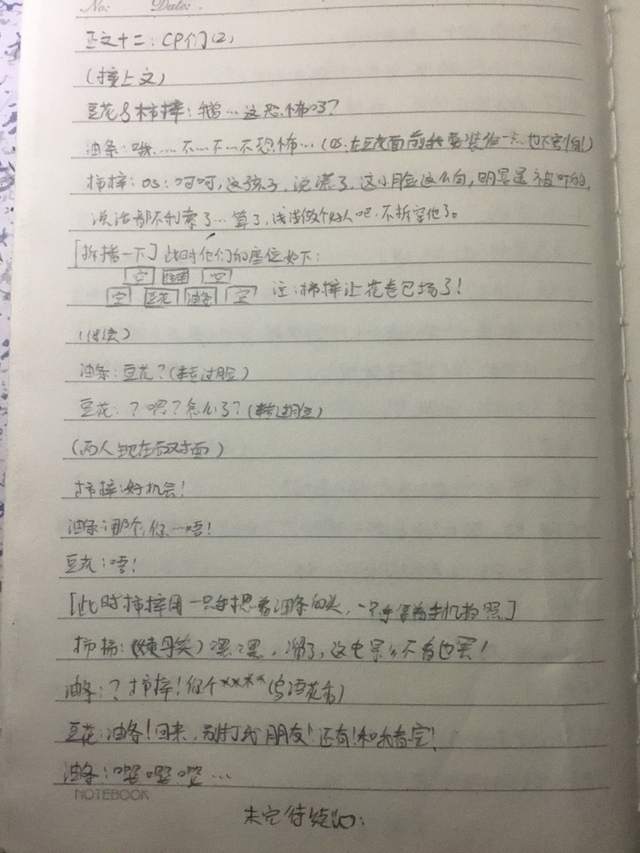 No:    Date:
正文十二：CP们(2)
(接上文)
豆花&柿梓：鹅…这恐怖吗？
油条：哦……不…不…不恐怖…(OS:在豆花面前我要装作一点也不害怕!)
柿梓：OS：呵呵，这孩子，没谁了，这小脸这么白，明显是被吓的，
说话都不利索了…算了，浅浅做个好人吧，不拆穿他了。
[插播一下]此时他们的座位如下：
空 空
空 豆花 油条 空 注：柿梓让花卷包场了！
(继续)
油条：豆花？(转过脸)
豆花：？嗯？怎么了？(转过脸)
(两人现在面对面)
柿梓：好机会！
油条：那个，你…唔！
豆花：唔！
[此时柿梓用一只手摁着油条的头，一只手拿着手机拍照]
柿梓：(姨母笑)嘿嘿，溜了，这电影不看也罢！
油条：？柿梓！你个****(鸟语花香)
豆花：油条！回来，别打我朋友！还有！和我看完！
油条：嘤嘤嘤…
NOTEBOOK
未完待续